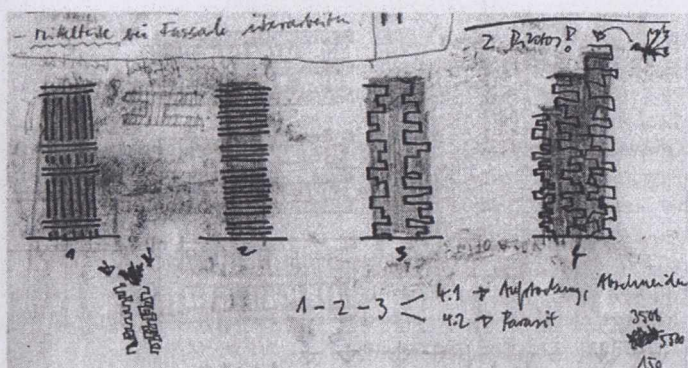 - Mittelteile bei Fassade überarbeiten
2
1
2
3
4
1 - 2 - 3
4.1 → Aufstockung, Abschneiden
4.2 → Parasit
3500
5500
150